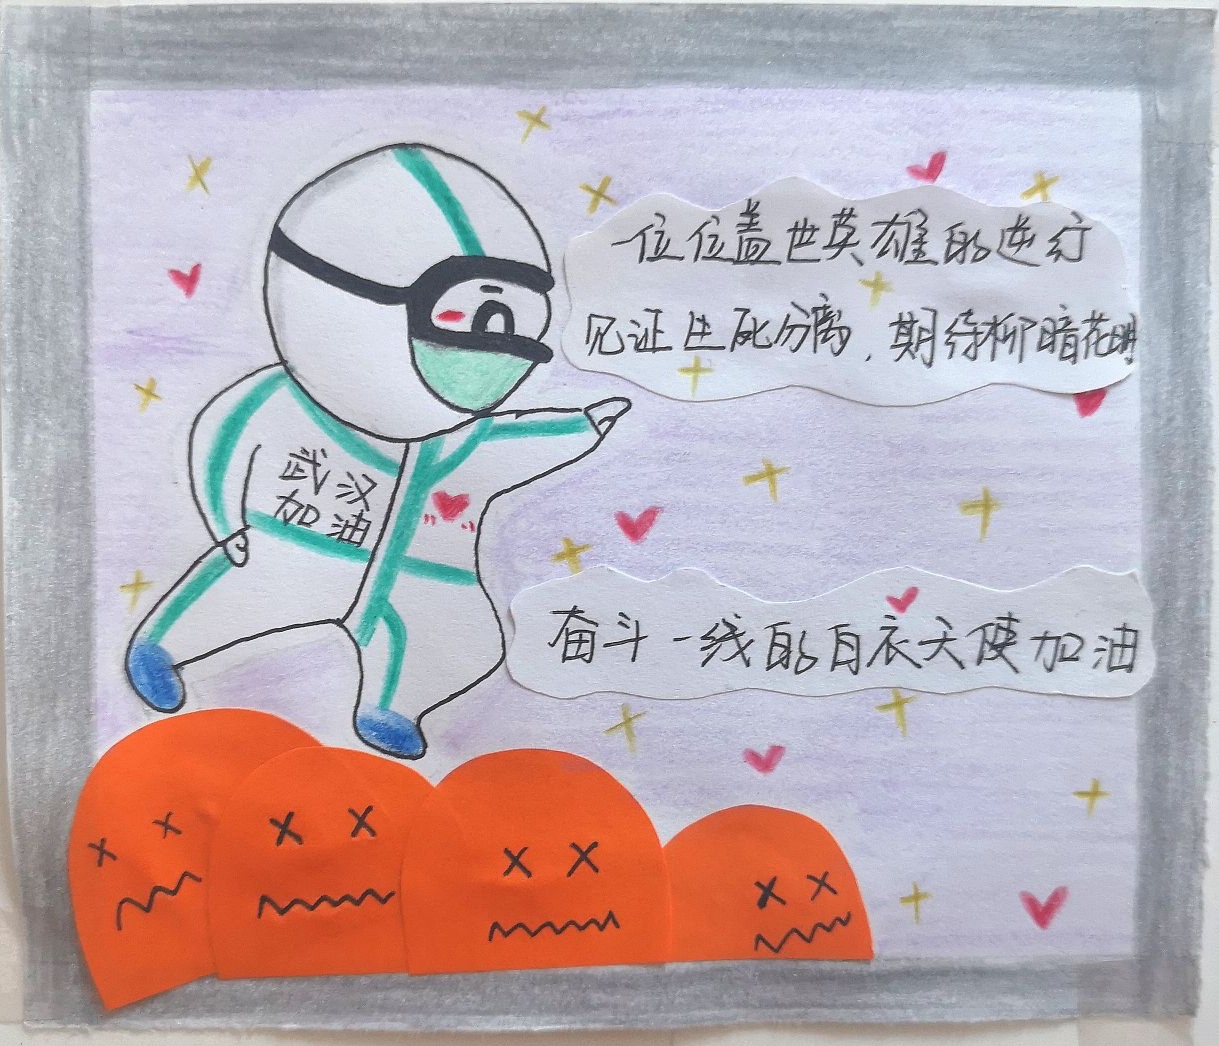 一位位盖世英雄的逆行
见证生死分离,期待柳暗花明
武汉
加油
奋斗一线的白衣天使加油